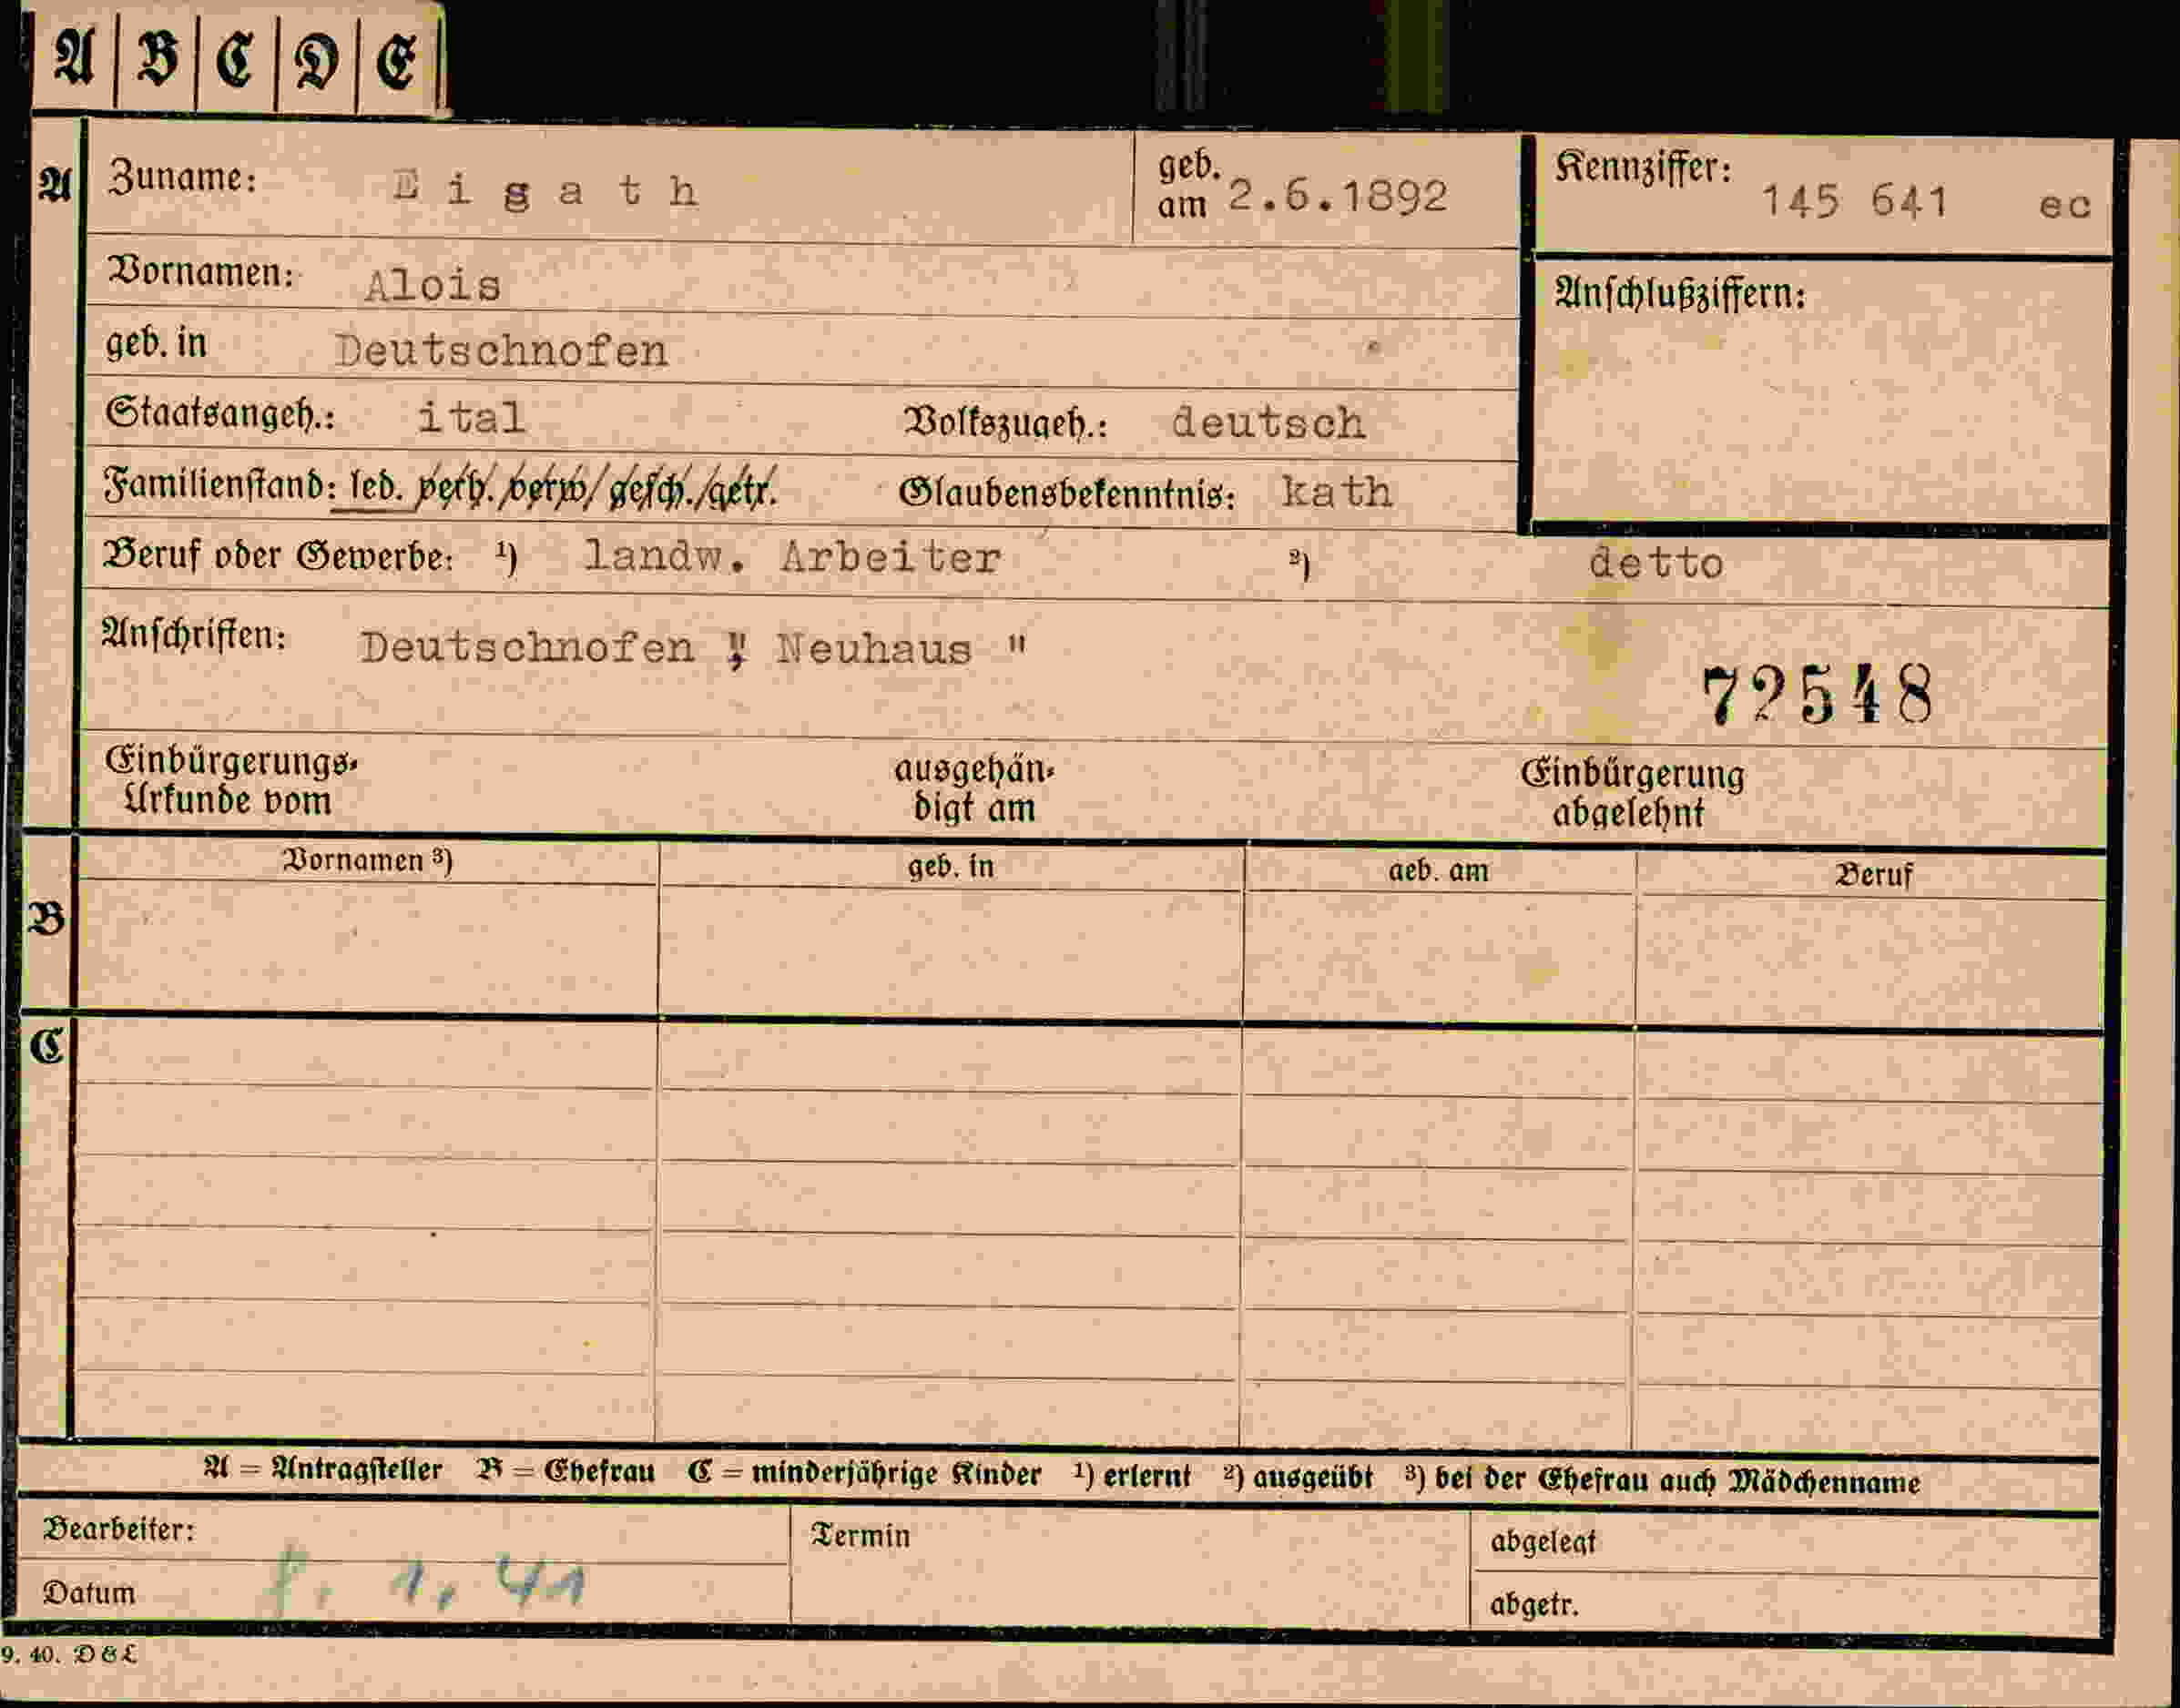 A B C D E
A Zuname: Eigath geb. am 2.6.1892 Kennziffer: 145 641 ec
Vornamen: Alois Anschlußziffern:
geb. in Deutschnofen
Staatsangeh.: ital Volkszugeh.: deutsch
Familienstand: led. verh. verw. gesch. getr. Glaubensbekenntnis: kath
Beruf oder Gewerbe: ¹) landw. Arbeiter ²) detto
Anschriften: Deutschnofen " Neuhaus "
72548
Einbürgerungs- Urkunde vom ausgehän- digt am Einbürgerung abgelehnt
Vornamen ³) geb. in geb. am Beruf
B
C
A = Antragsteller B = Ehefrau C = minderjährige Kinder ¹) erlernt ²) ausgeübt ³) bei der Ehefrau auch Mädchenname
Bearbeiter: Termin abgelegt
Datum 8. 1. 41 abgetr.
9. 40. D&L